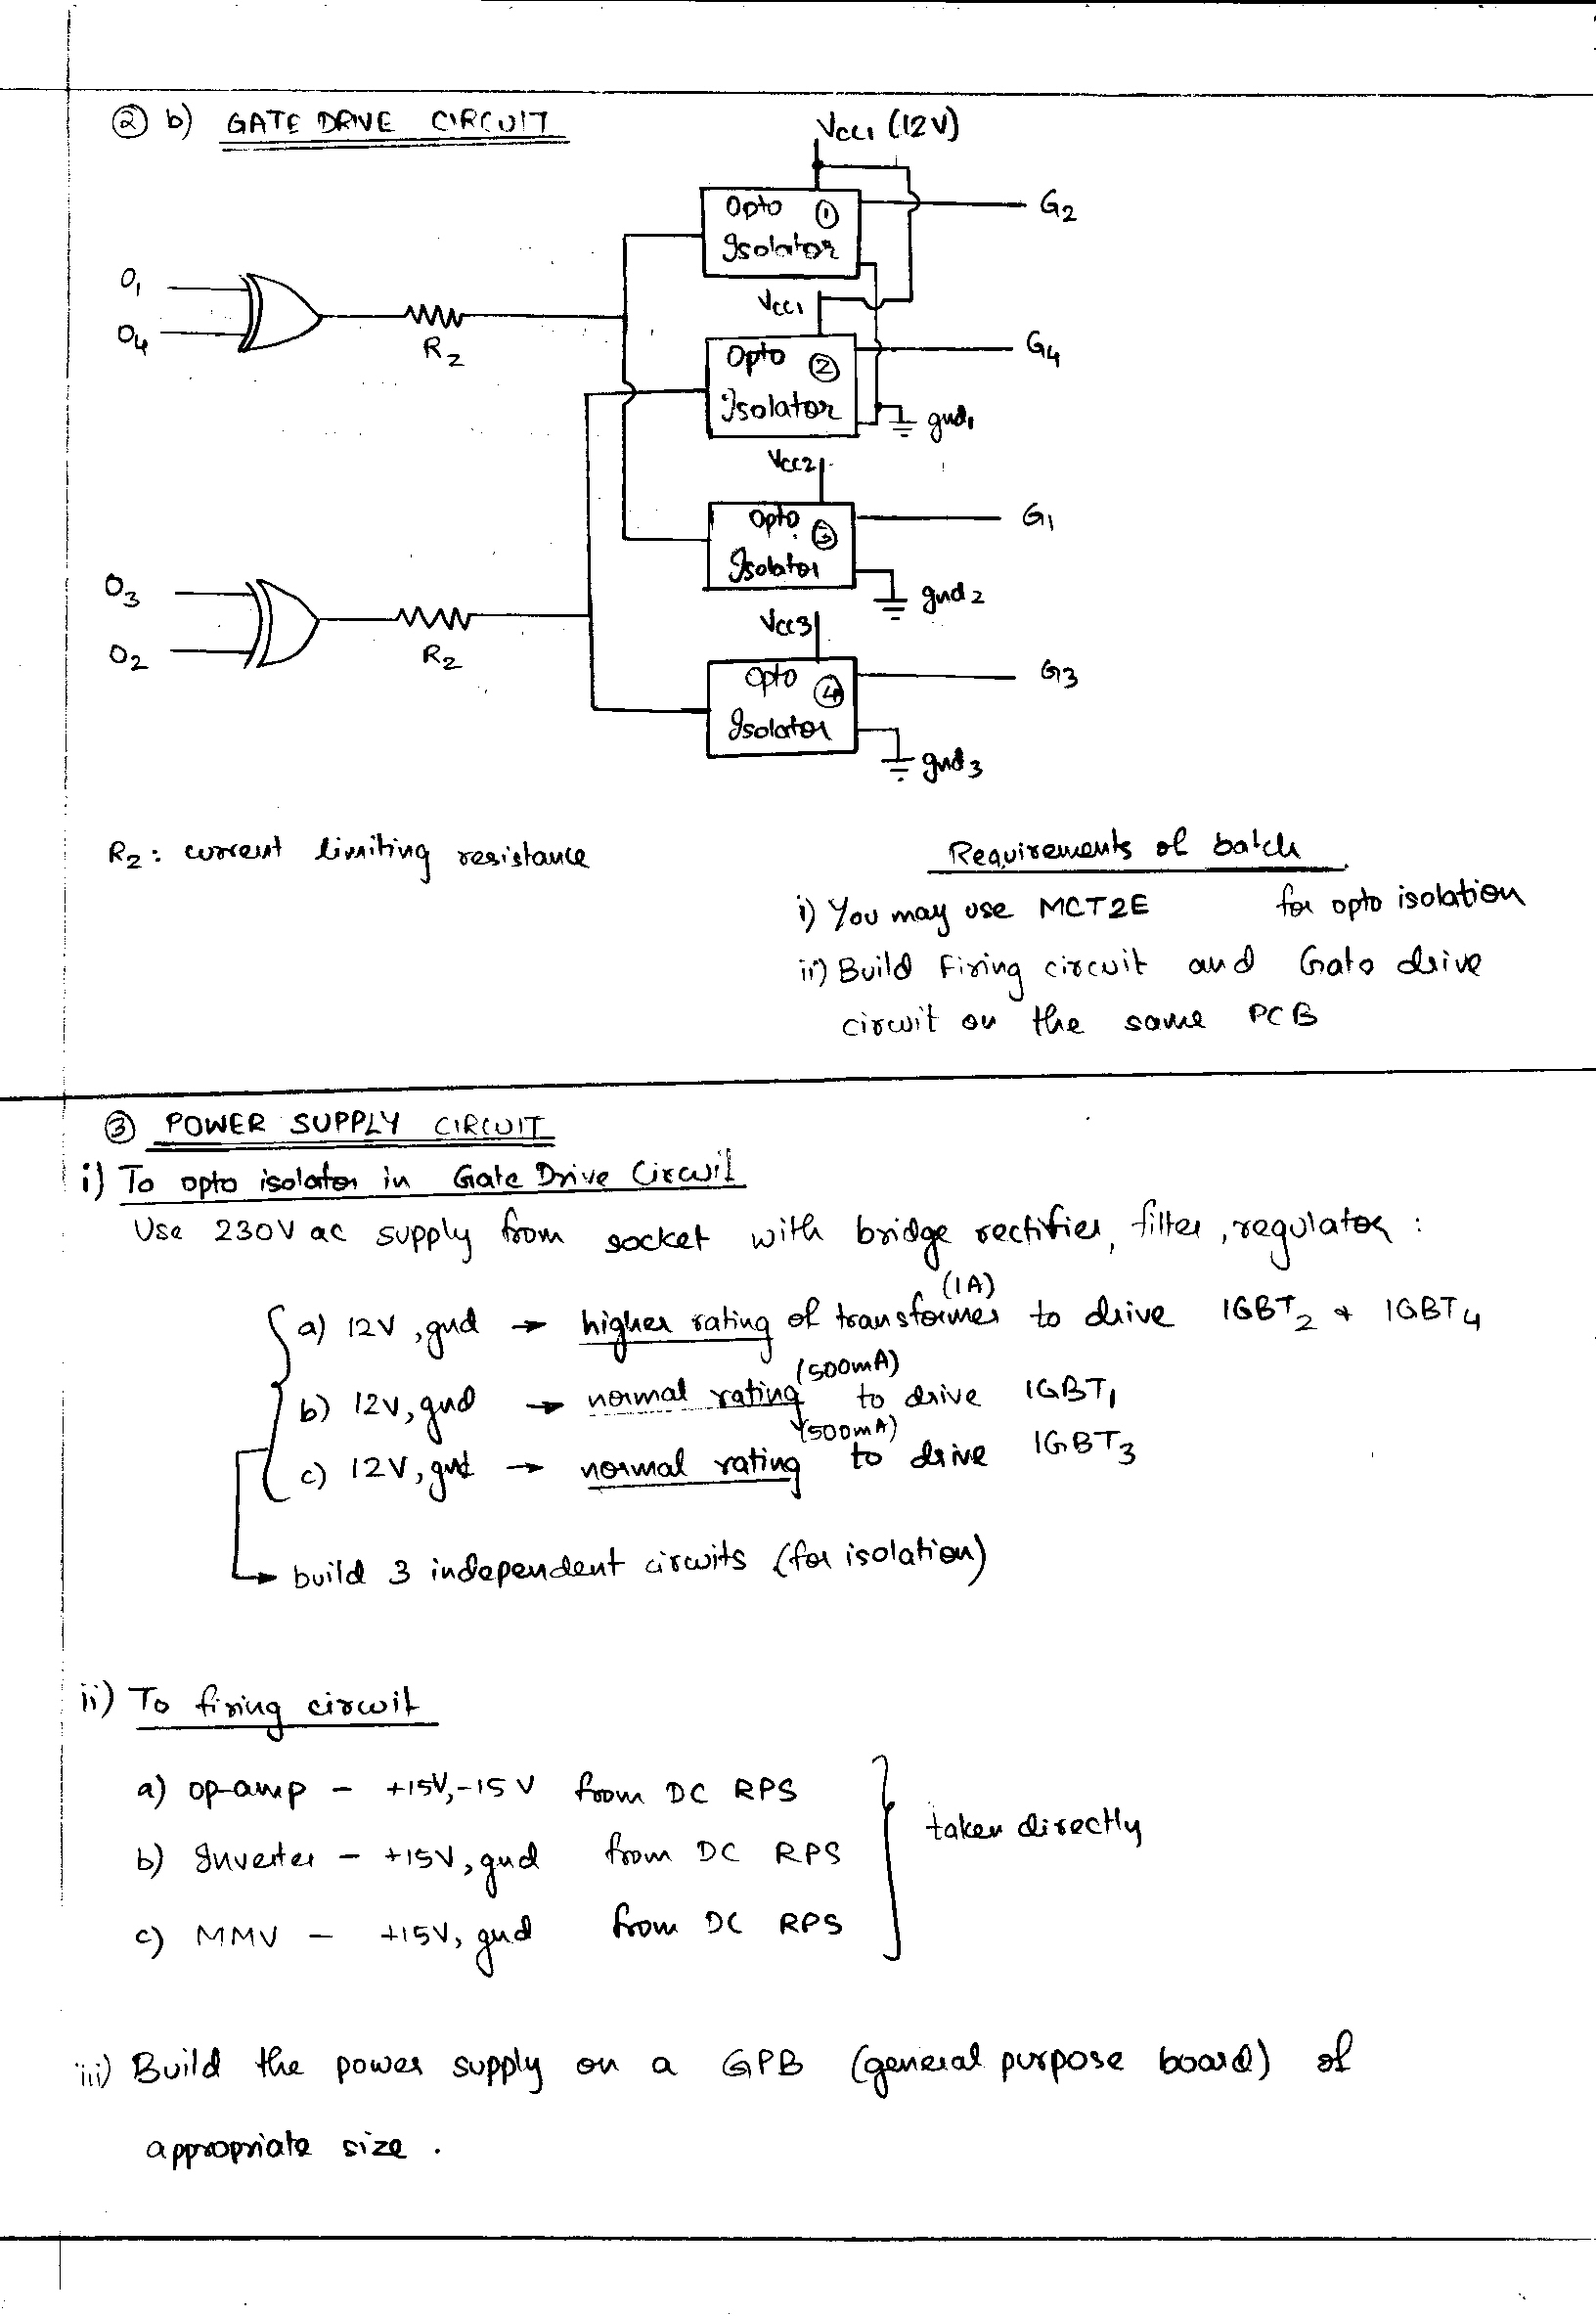 ② b) GATE DRIVE CIRCUIT
VCC1 (12V)
Opto ①
Isolator
G2
O1
O4
R2
VCC1
Opto ②
Isolator
G4
gnd1
VCC2
Opto ③
Isolator
G1
gnd2
O3
O2
R2
VCC3
Opto ④
Isolator
G3
gnd3
R2 : current limiting resistance
Requirements of batch
i) You may use MCT2E for opto isolation
ii) Build Firing circuit and Gate drive
circuit on the same PCB
③ POWER SUPPLY CIRCUIT
i) To opto isolator in Gate Drive Circuit
Use 230V ac supply from socket with bridge rectifier, filter, regulator :
a) 12V, gnd → higher rating of transformer (1A) to drive IGBT2 & IGBT4
b) 12V, gnd → normal rating (500mA) to drive IGBT1
c) 12V, gnd → normal rating (500mA) to drive IGBT3
→ build 3 independent circuits (for isolation)
ii) To firing circuit
a) op-amp - +15V, -15V from DC RPS
b) Inverter - +15V, gnd from DC RPS
taken directly
c) MMV - +15V, gnd from DC RPS
iii) Build the power supply on a GPB (general purpose board) of
appropriate size .